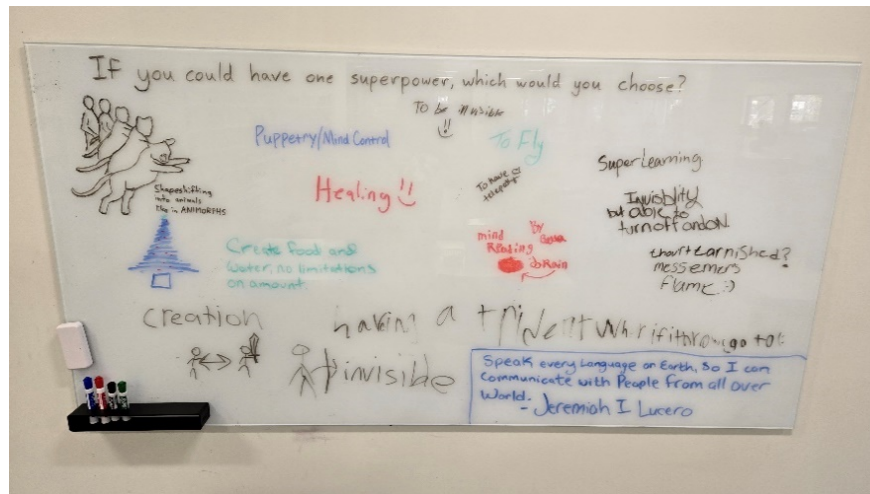 If you could have one superpower, which would you choose?
To be
Puppetry/Mind Control
To Fly
Super Learning
Shapeshifting
into animals
like in ANIMORPHS
Healing !!
To have
teleport
Invisiblity
but able to
turn off and on
mind
Reading
By
Create food and
water, no limitations
on amount.
messemers
flame :)
creation
having a
invisible
Speak every Language on Earth, So I can
Communicate with People from all over
World.
- Jeremiah I Lucero